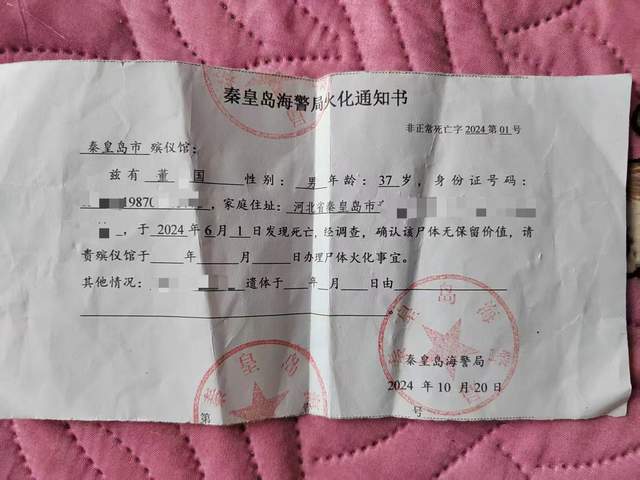 秦皇岛海警局火化通知书
非正常死亡字 2024 第 01 号
秦皇岛市 殡仪馆:
兹有 董 国 性别: 男 年龄: 37 岁,身份证号码:
1987 ,家庭住址: 河北省秦皇岛市
,于 2024 年 6 月 1 日发现死亡,经调查,确认该尸体无保留价值,请
贵殡仪馆于 年 月 日办理尸体火化事宜。
其他情况: 遗体于 年 月 日由
。
秦皇岛海警局
2024 年 10 月 20 日
第
号
秦皇岛海警
秦皇岛